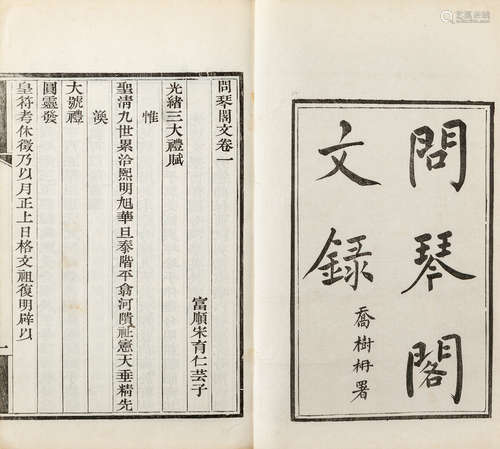 問琴閣
文錄
喬樹枏署
問琴閣文卷一
富順宋育仁芸子
光緒三大禮賦
惟
聖清九世累洽熙明旭華旦泰階平翕河隤祉憲天垂精先
渙
大號禮
圓靈發
皇符考休徵乃以月正上日格文祖復明辟以